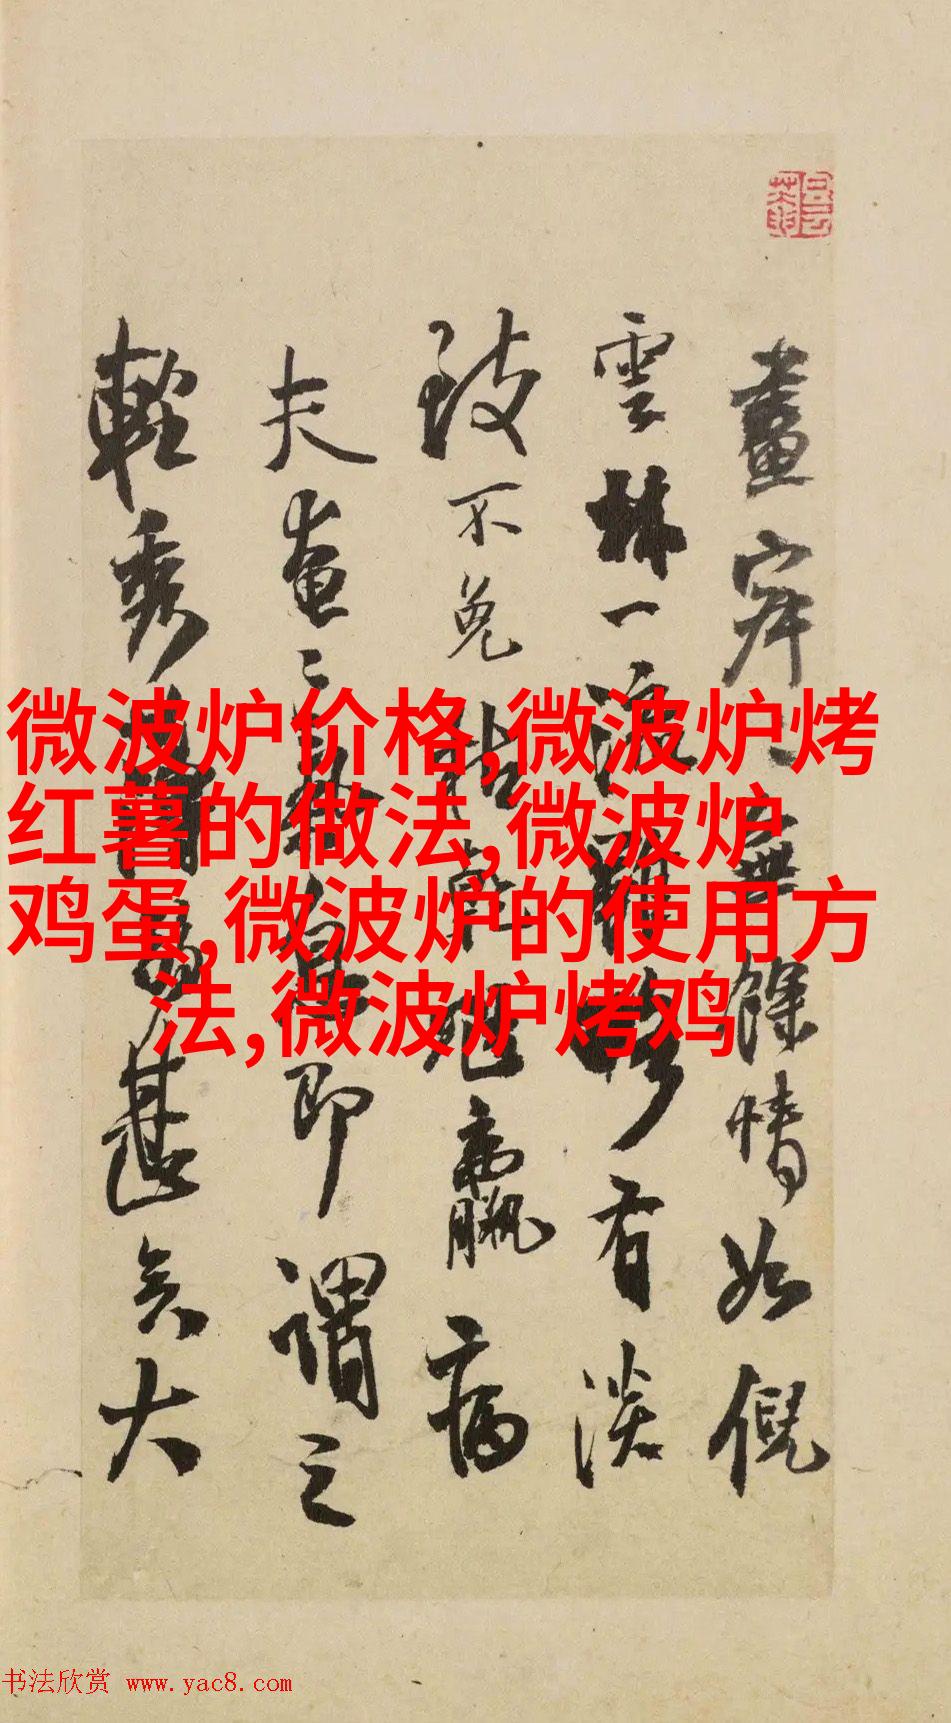 微波炉价格,微波炉烤
红薯的做法,微波炉
鸡蛋,微波炉的使用方
法,微波炉烤鸡
畫無餘情如倪
雲林一有淡
致不免枯乾尪羸病
夫奄奄即謂之
輕秀甚矣大
书法欣赏 www.yac8.com